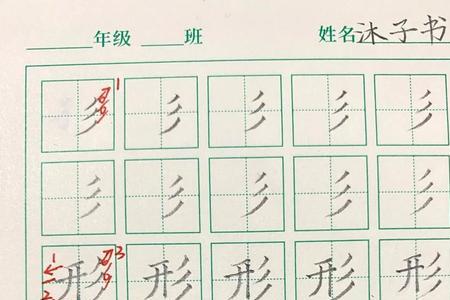 年级 班 姓名 沐子书
1 彡 彡 彡 彡 彡
彡 彡 彡 彡 彡
1 2 形 3 形 形 形 形